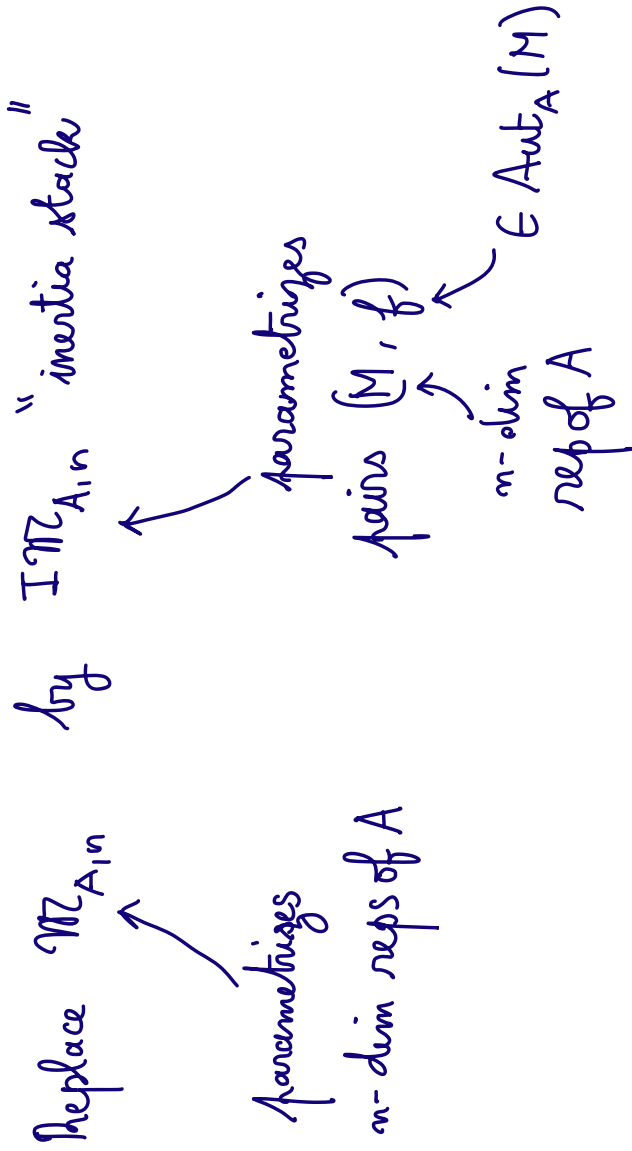 Replace 𝔐_{A,n} by I𝔐_{A,n} "inertia stack"
parametrizes
n-dim reps of A
parametrizes
pairs (M, f)
n-dim
rep of A
∈ Aut_A(M)